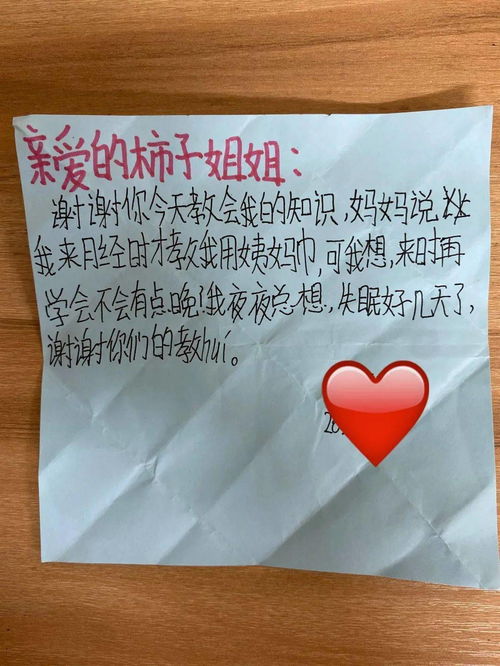 亲爱的柿子姐姐：
谢谢你今天教会我的知识,妈妈说
我来月经时才教我用姨妈巾,可我想,来时再
学会不会有点晚!我夜夜总想,失眠好几天了,
谢谢你们的教huí。
20